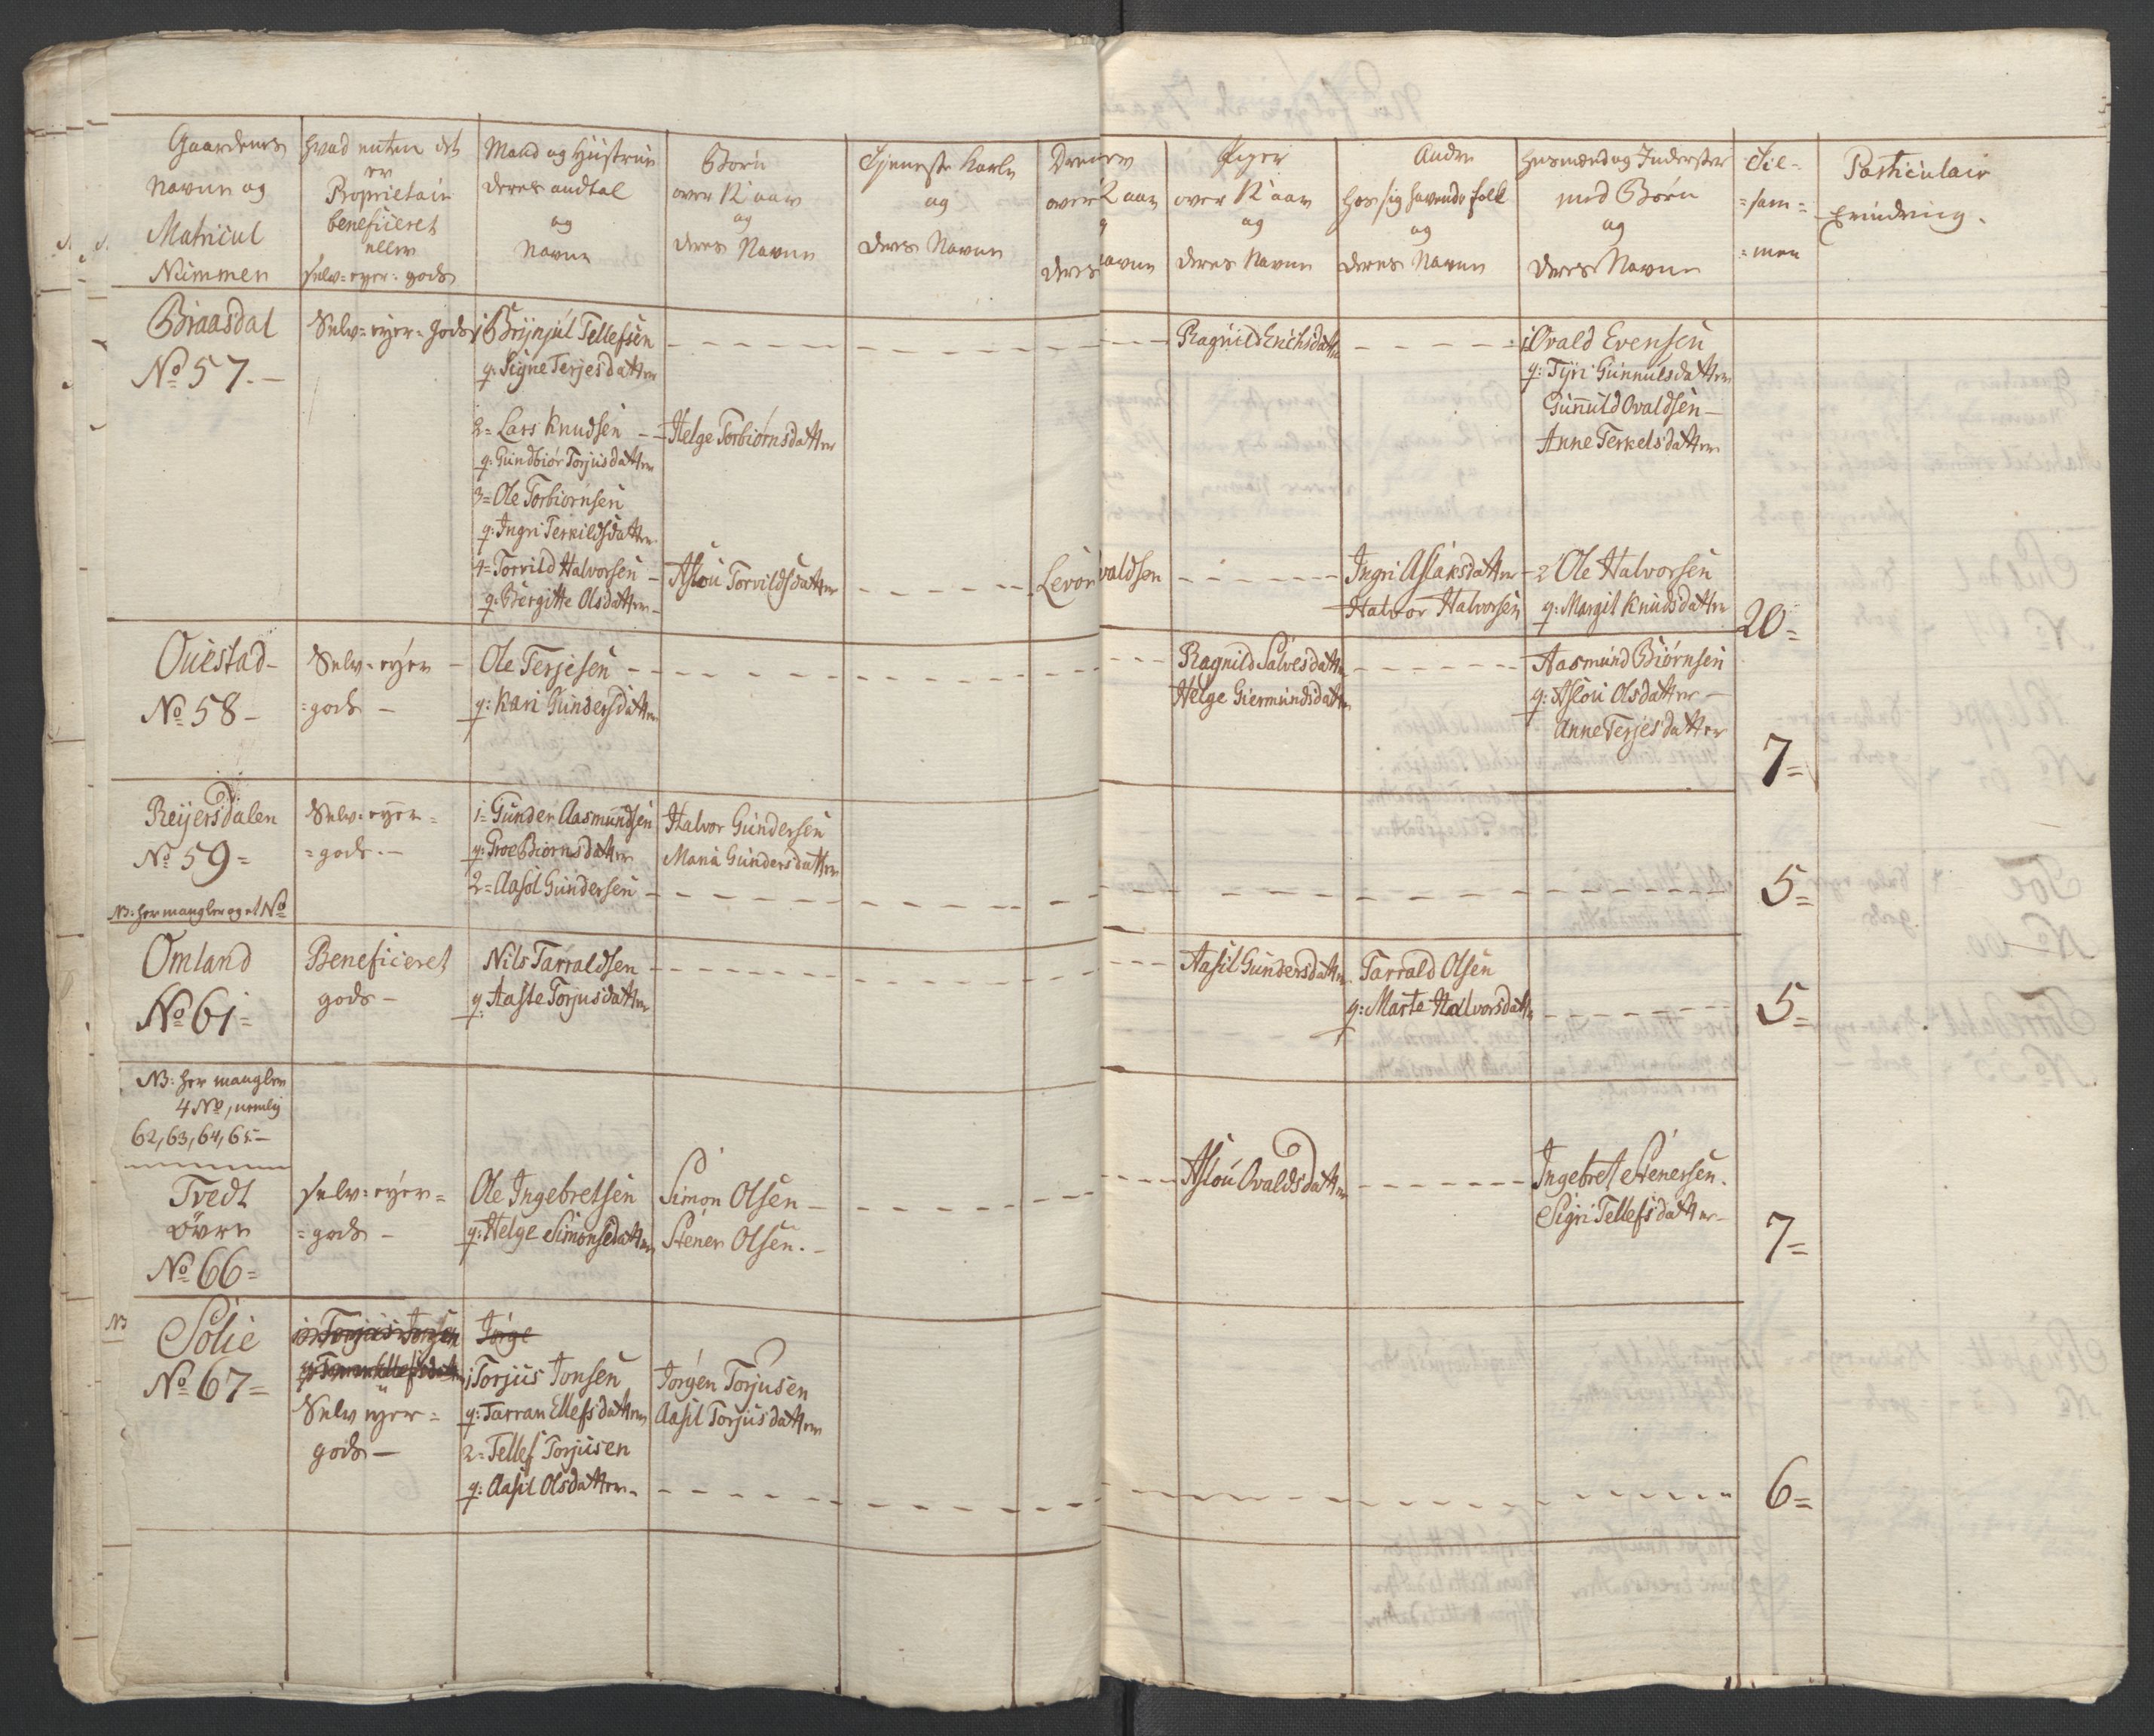 Gaardenes
Navne og
Matricul
Nummer
hvad enten det
er
Proprietair
beneficeret
eller
Selv-eyer-gods
Mand og Hustrue
deres andtal
og
Navne
Børn
over 12 aar
og
deres Navne
Tjeneste Karle
og
deres Navne
Drenge
over 12 aar
og
deres Navne
Piger
over 12 aar
og
deres Navne
Andre
hos sig havende folk
og
deres Navne
Husmænd og Inderster
med Børn
og
deres Navne
Til=
=sam=
=men
Particulair
Erindring.
Braasdal
No 57.—
Selv-eyer-gods
1 Brynjul Tellefsen
q: Signe Terjesdatter
2= Lars Knudsen
q: Gundbior Torjusdatter
3= Ole Torbiørnsen
q: Ingri Terkildsdatter
4= Torvild Halvorsen
q: Bergitte Olsdatter
Helge Torbiørnsdatter
Aslou Torvildsdatter
Ragnild Erichsdatter
Ingri Aslaksdatter
Halvor Halvorsen
1 Ovald Evensen
q: Tyri Gunnulsdatter
Gunnuld Ovaldsen—
Anne Terkelsdatter
2 Ole Halvorsen
q: Margit Knudsdatter
20=
Ouestad-
No 58-
Selv=eyer
=gods —
Ole Terjesen
q: Kari Gundersdatter
Ragnild Salvesdatter
Helge Giermundsdatter
Aasmund Biørnsen
q: Aslou Olsdatter—
Anne Terjesdatter
7=
Reyersdalen
No 59=
NB: her mangler og et No
Selv=eyer=
=gods.—
1= Gunder Aasmundsen
q: Groe Biornsdatter
2= Aasol Gundersen
Halvor Gundersen
Maria Gundersdatter
5=
Omland
No 61=
Beneficeret
gods—
Nils Tarraldsen
q: Aaste Torjusdatter
Aasil Gundersdatter
Tarrald Olsen
q: Marte Halvorsdatter
5=
NB: her mangler
4 No, nemlig
62, 63, 64, 65.—
Tvedt
øvre
No 66=
Selv=eyer=
=gods —
Ole Ingebretsen
q: Helge Simonsdatter
Simon Olsen—
Stener Olsen.—
Aslou Ovaldsdatter
Ingebret Stenersen.
Sigri Tellefsdatter—
7=
NB
Solie
No 67=
1= Torjus Jonsen
q: Tarran Ellefsdatter
Selv eyer=
gods—
Jørge
1 Torjus Jonsen
q: Tarran Ellefsdatter
2= Tellef Torjusen
q: Aasil Olsdatter.
Jørgen Torjusen
Aasil Torjusdatter
6=